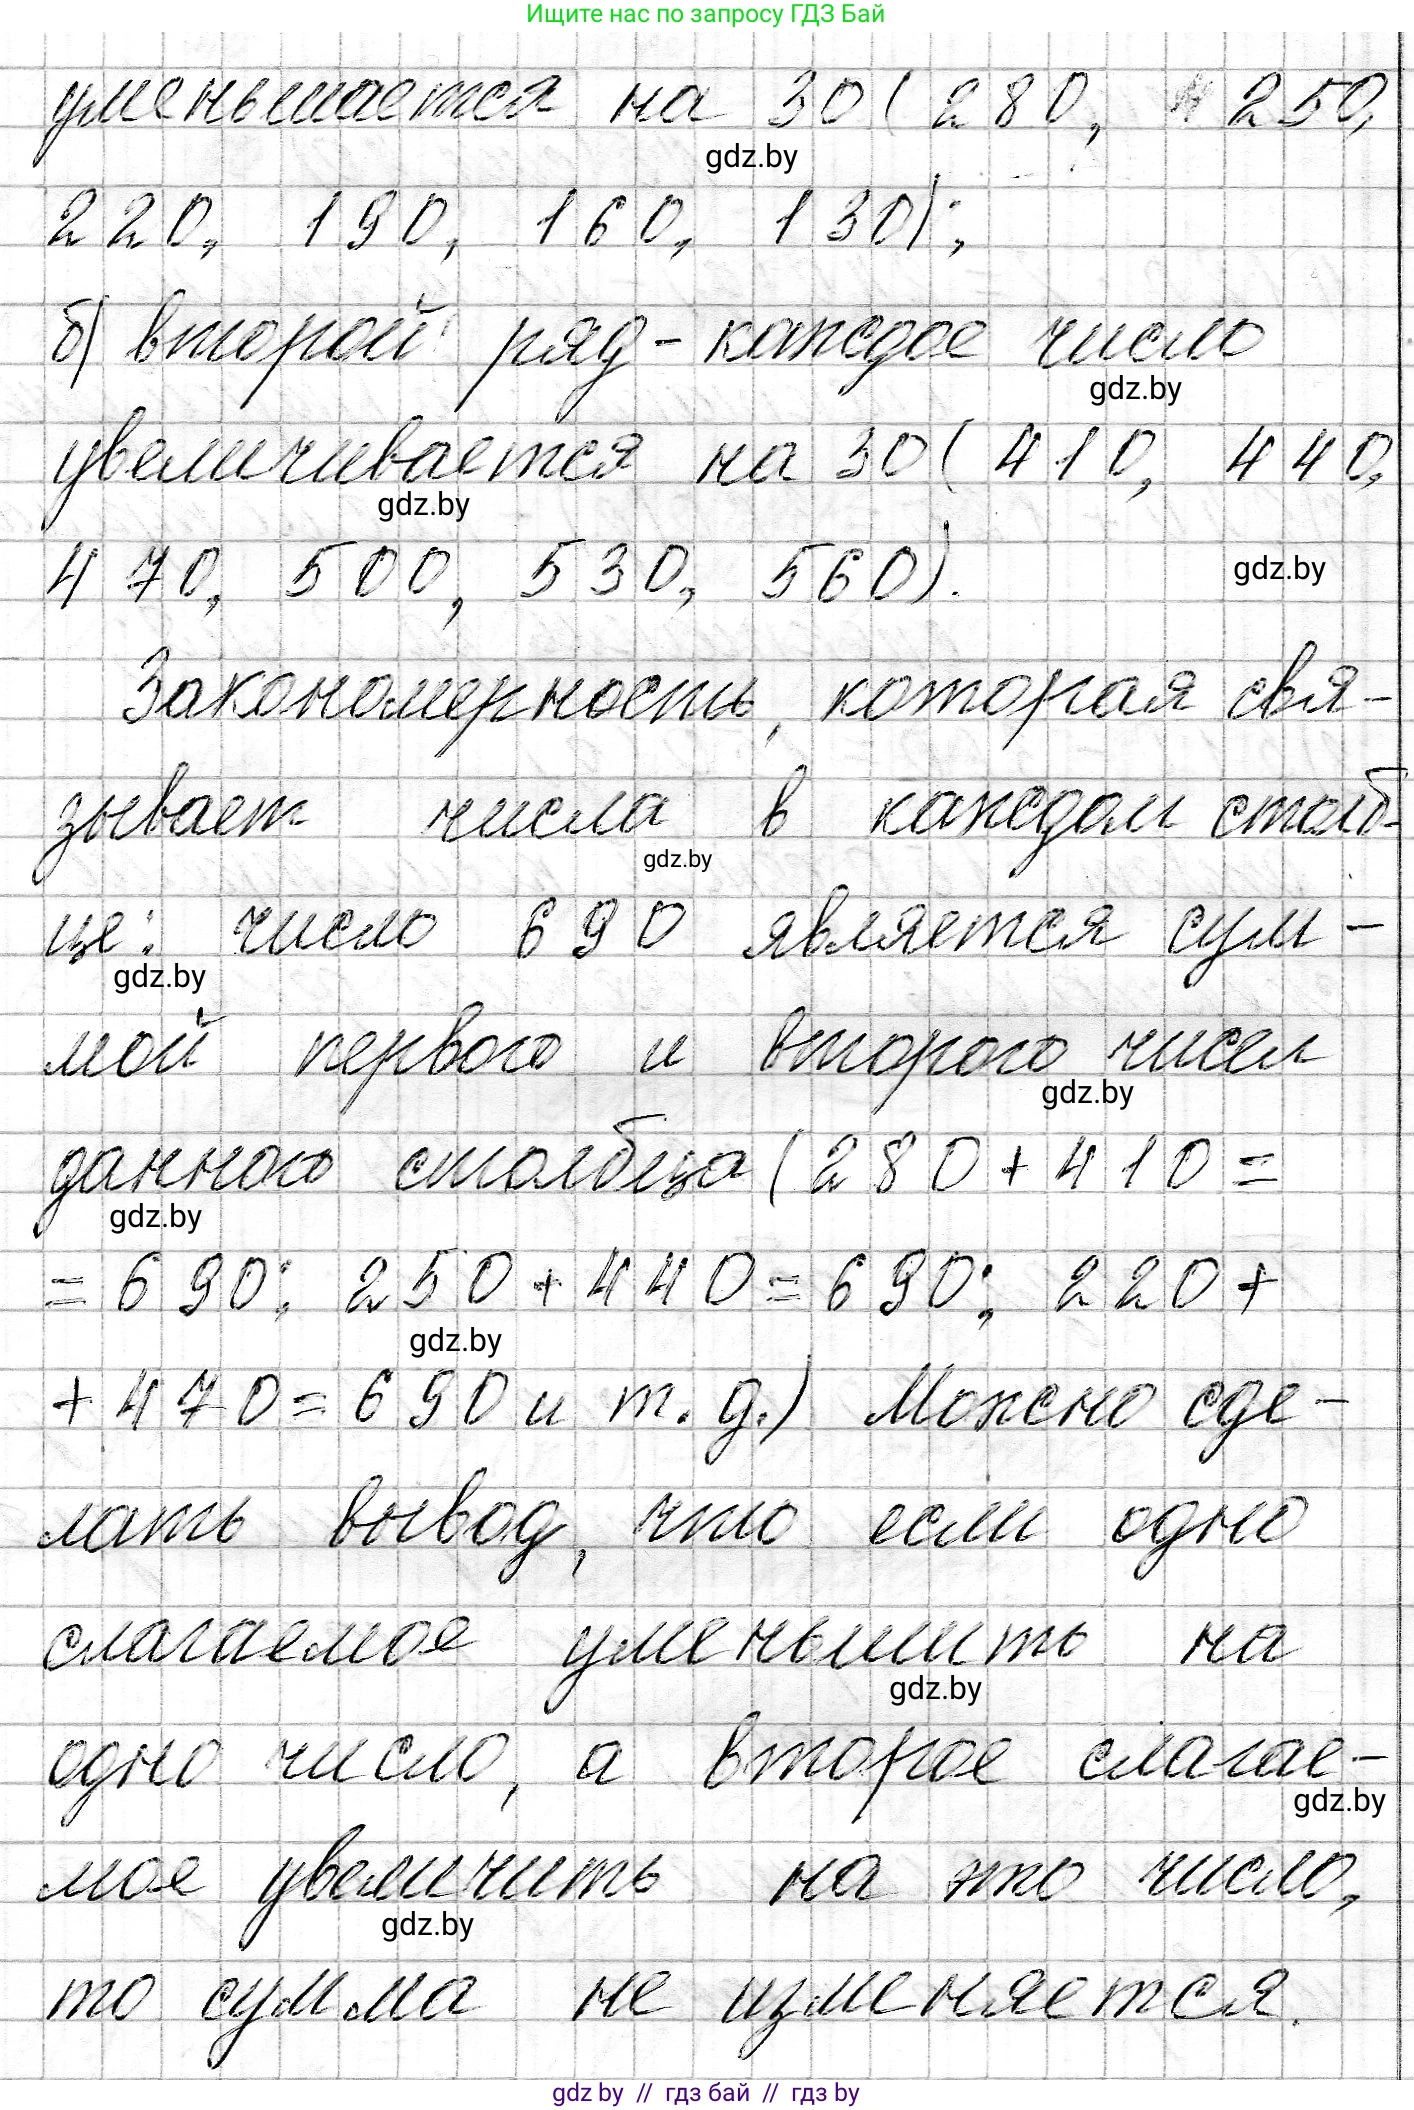 Ищите нас по запросу ГДЗ Бай
уменьшается на 30 (280, 250,
gdz.by
220, 190, 160, 130);
б) второй ряд - каждое число
gdz.by
увеличивается на 30 (410, 440,
gdz.by
470, 500, 530, 560).
gdz.by
Закономерность, которая свя-
зывает числа в каждом столб-
gdz.by
це: число 690 является сум-
gdz.by
мой первого и второго чисел
gdz.by
данного столбца (280 + 410 =
gdz.by
= 690; 250 + 440 = 690; 220 +
gdz.by
+ 470 = 690 и т. д.) Можно сде-
лать вывод, что если одно
слагаемое уменьшить на
gdz.by
одно число, а второе слагае-
gdz.by
мое увеличить на это число,
gdz.by
то сумма не изменяется.
gdz by // гдз бай // гдз by